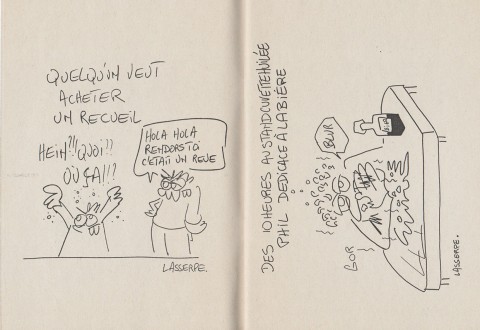 QUELQU'UN VEUT
ACHETER
UN RECUEIL
HEIN?! QUOI??
OÙ ÇA!!?
HOLA HOLA
RENDORS TOI
C'ETAIT UN REVE
LASSERPE.
DES 10 HEURES AU STAND CUVETTE HUILÉE
PHIL DEDICACE À LA BIÈRE
BLUR
GOR
LASSERPE.